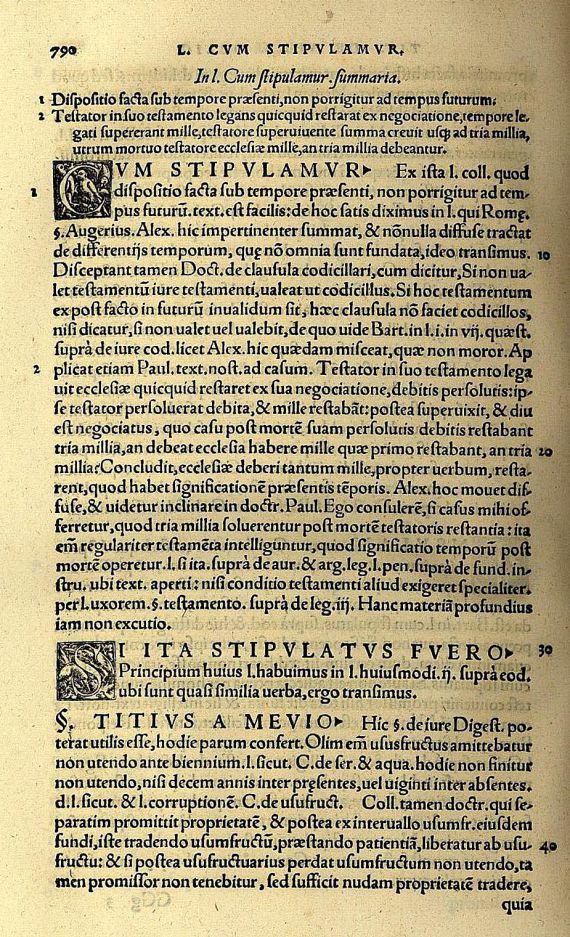 790 L. CVM STIPVLAMVR.
In l. Cum stipulamur. summaria.
1 Dispositio facta sub tempore præsenti, non porrigitur ad tempus futurum.
2 Testator in suo testamento legans quicquid restarat ex negociatione, tempore le-
gati supererant mille, testatore superuiuente summa creuit usq; ad tria millia,
utrum mortuo testatore ecclesiæ mille, an tria millia debeantur.
CVM STIPVLAMVR▸ Ex ista l. coll. quod
1 dispositio facta sub tempore præsenti, non porrigitur ad tem-
pus futurũ. text. est facilis: de hoc satis diximus in l. qui Romę.
§. Augerius. Alex. hic impertinenter summat, & nõnulla diffuse tractat
de differentijs temporum, quę nõ omnia sunt fundata, ideo transimus. 10
Disceptant tamen Doct. de clausula codicillari, cum dicitur, Si non ua-
let testamentũ iure testamenti, ualeat ut codicillus. Si hoc testamentum
ex post facto in futurũ inualidum sit, hæc clausula nõ faciet codicillos,
nisi dicatur, si non ualet uel ualebit, de quo uide Bart. in l. i. in vij. quæst.
suprà de iure cod. licet Alex. hic quædam misceat, quæ non moror. Ap
2 plicat etiam Paul. text. nost. ad casum. Testator in suo testamento lega
uit ecclesiæ quicquid restaret ex sua negociatione, debitis persolutis: ip-
se testator persoluerat debita, & mille restabãt: postea superuixit, & diu
est negociatus, quo casu post mortẽ suam persolutis debitis restabant
tria millia, an debeat ecclesia habere mille quæ primo restabant, an tria 20
millia? Concludit, ecclesiæ deberi tantum mille, propter uerbum, resta-
rent, quod habet significationẽ præsentis tẽporis. Alex. hoc mouet dif-
fuse, & uidetur inclinare in doctr. Paul. Ego consulerẽ, si casus mihi of-
ferretur, quod tria millia soluerentur post mortẽ testatoris restantia: ita
em̃ regulariter testamẽta intelliguntur, quod significatio temporũ post
mortẽ operetur. l. si ita. suprà de aur. & arg. leg. l. pen. suprà de fund. in-
stru. ubi text. aperti: nisi conditio testamenti aliud exigeret specialiter.
per l. uxorem. §. testamento. suprà de leg. iij. Hanc materiã profundius
iam non excutio.
SI ITA STIPVLATVS FVERO▸ 30
Principium huius l. habuimus in l. huiusmodi. ij. suprà eod.
ubi sunt quasi similia uerba, ergo transimus.
§. TITIVS A MEVIO▸ Hic §. de iure Digest. po-
terat utilis esse, hodie parum confert. Olim em̃ ususfructus amittebatur
non utendo ante biennium. l. sicut. C. de ser. & aqua. hodie non finitur
non utendo, nisi decem annis inter pręsentes, uel uiginti inter absentes.
d. l. sicut. & l. corruptionẽ. C. de usufruct. Coll. tamen doctr. qui se-
paratim promittit proprietatẽ, & postea ex interuallo usumfr. eiusdem
fundi, iste tradendo usumfructũ, præstando patientiã, liberatur ab usu- 40
fructu: & si postea ususfructuarius perdat usumfructum non utendo, ta
men promissor non tenebitur, sed sufficit nudam proprietatẽ tradere,
quia